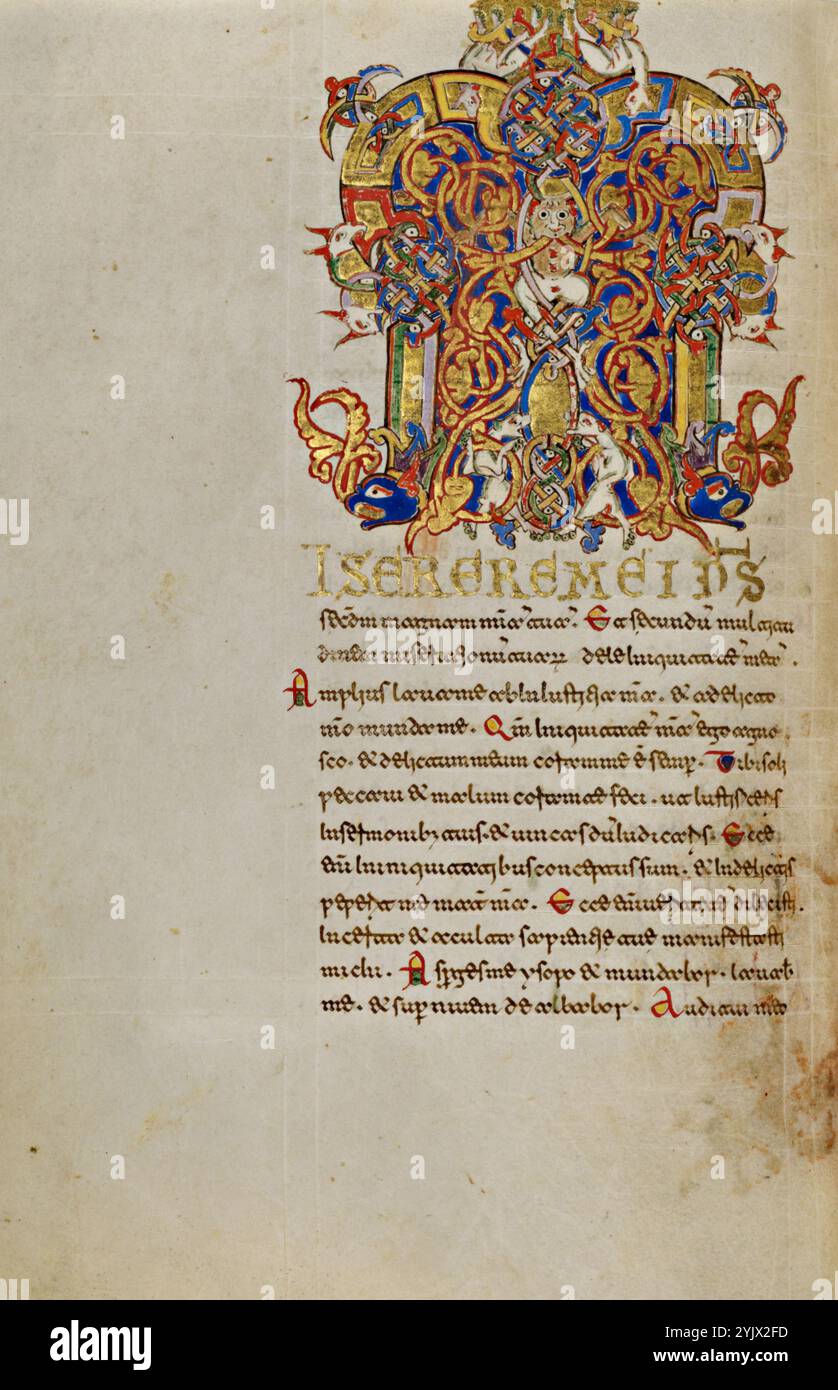 M
ISERERE MEI DS
secdm magnam miam tuam. Et secundu multitu
dinem miserationu tuaru dele iniquitate mea.
Amplius laua me ab iniustitia mea. & a delicto
mo munda me. Qm iniquitate mea ego agno
sco. & delictum meum coram me e semp. Tibi soli
peccaui & malum coram te feci. ut iustificeris
in sermonib tuis. & uincas du iudicaris. Ecce
eni in iniquitatibus conceptus sum. & in delictis
peperit me mat mea. Ecce eni ueritate dilexisti.
incerta & occulta sapientie tue manifestasti
michi. Asperges me ysopo & mundabor. lauab
me. & sup niuem dealbabor. Auditui meo
alamy
Image ID: 2YJX2FD
www.alamy.com